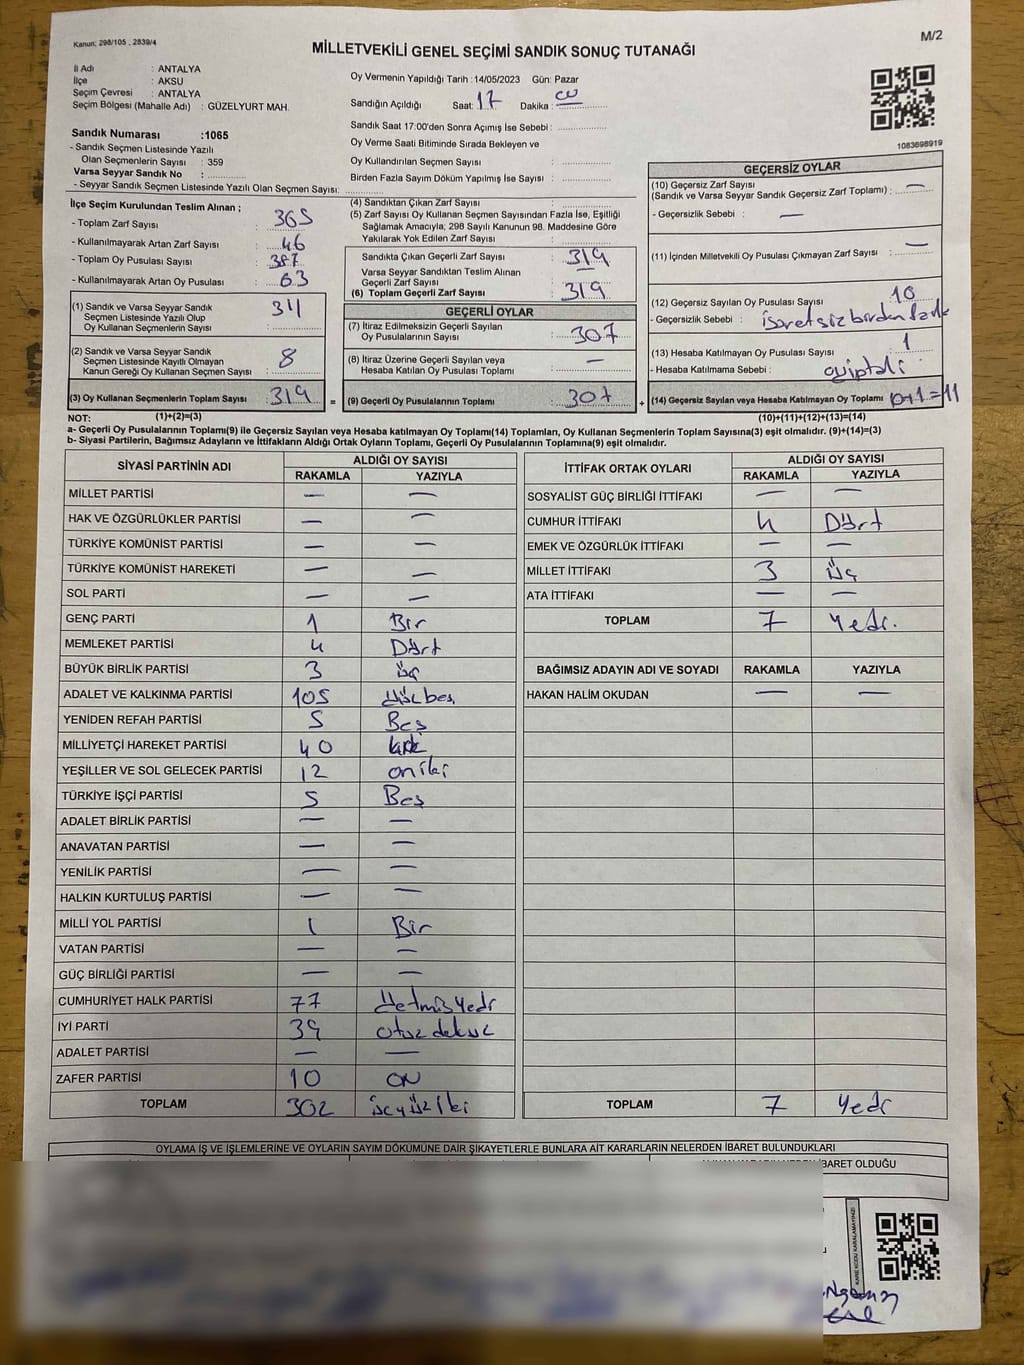 Kanun: 298/105 , 2839/4
M/2
MİLLETVEKİLİ GENEL SEÇİMİ SANDIK SONUÇ TUTANAĞI
İl Adı : ANTALYA
İlçe : AKSU
Seçim Çevresi : ANTALYA
Seçim Bölgesi (Mahalle Adı) : GÜZELYURT MAH.
Sandık Numarası :1065
- Sandık Seçmen Listesinde Yazılı
Olan Seçmenlerin Sayısı : 359
Varsa Seyyar Sandık No :
- Seyyar Sandık Seçmen Listesinde Yazılı Olan Seçmen Sayısı:
Oy Vermenin Yapıldığı Tarih :14/05/2023 Gün: Pazar
Sandığın Açıldığı Saat: 17 Dakika :
Sandık Saat 17:00'den Sonra Açımış İse Sebebi :
Oy Verme Saati Bitiminde Sırada Bekleyen ve
Oy Kullandırılan Seçmen Sayısı :
Birden Fazla Sayım Döküm Yapılmış İse Sayısı :
1083698919
İlçe Seçim Kurulundan Teslim Alınan ;
- Toplam Zarf Sayısı : 365
- Kullanılmayarak Artan Zarf Sayısı : 46
- Toplam Oy Pusulası Sayısı : 387
- Kullanılmayarak Artan Oy Pusulası : 63
(1) Sandık ve Varsa Seyyar Sandık
Seçmen Listesinde Yazılı Olup
Oy Kullanan Seçmenlerin Sayısı : 311
(2) Sandık ve Varsa Seyyar Sandık
Seçmen Listesinde Kayıtlı Olmayan
Kanun Gereği Oy Kullanan Seçmen Sayısı : 8
(3) Oy Kullanan Seçmenlerin Toplam Sayısı : 319 =
(4) Sandıktan Çıkan Zarf Sayısı :
(5) Zarf Sayısı Oy Kullanan Seçmen Sayısından Fazla İse, Eşitliği
Sağlamak Amacıyla; 298 Sayılı Kanunun 98. Maddesine Göre
Yakılarak Yok Edilen Zarf Sayısı :
Sandıkta Çıkan Geçerli Zarf Sayısı : 319
Varsa Seyyar Sandıktan Teslim Alınan
Geçerli Zarf Sayısı : —
(6) Toplam Geçerli Zarf Sayısı : 319
GEÇERLİ OYLAR
(7) İtiraz Edilmeksizin Geçerli Sayılan
Oy Pusulalarının Sayısı : 307
(8) İtiraz Üzerine Geçerli Sayılan veya
Hesaba Katılan Oy Pusulası Toplamı : —
(9) Geçerli Oy Pusulalarının Toplamı : 307 +
GEÇERSİZ OYLAR
(10) Geçersiz Zarf Sayısı
(Sandık ve Varsa Seyyar Sandık Geçersiz Zarf Toplamı) : —
- Geçersizlik Sebebi : —
(11) İçinden Milletvekili Oy Pusulası Çıkmayan Zarf Sayısı : —
(12) Geçersiz Sayılan Oy Pusulası Sayısı : 10
- Geçersizlik Sebebi : işaretsiz birden fazla
(13) Hesaba Katılmayan Oy Pusulası Sayısı : 1
- Hesaba Katılmama Sebebi : oy iptali
(14) Geçersiz Sayılan veya Hesaba Katılmayan Oy Toplamı 10+1=11
NOT: (1)+(2)=(3) (10)+(11)+(12)+(13)=(14)
a- Geçerli Oy Pusulalarının Toplamı(9) ile Geçersiz Sayılan veya Hesaba katılmayan Oy Toplamı(14) Toplamları, Oy Kullanan Seçmenlerin Toplam Sayısına(3) eşit olmalıdır. (9)+(14)=(3)
b- Siyasi Partilerin, Bağımsız Adayların ve İttifakların Aldığı Ortak Oyların Toplamı, Geçerli Oy Pusulalarının Toplamına(9) eşit olmalıdır.
SİYASİ PARTİNİN ADI ALDIĞI OY SAYISI
RAKAMLA YAZIYLA
MİLLET PARTİSİ — —
HAK VE ÖZGÜRLÜKLER PARTİSİ — —
TÜRKİYE KOMÜNİST PARTİSİ — —
TÜRKİYE KOMÜNİST HAREKETİ — —
SOL PARTİ — —
GENÇ PARTİ 1 Bir
MEMLEKET PARTİSİ 4 Dört
BÜYÜK BİRLİK PARTİSİ 3 üç
ADALET VE KALKINMA PARTİSİ 105 yüz beş
YENİDEN REFAH PARTİSİ 5 Beş
MİLLİYETÇİ HAREKET PARTİSİ 40 kırk
YEŞİLLER VE SOL GELECEK PARTİSİ 12 oniki
TÜRKİYE İŞÇİ PARTİSİ 5 Beş
ADALET BİRLİK PARTİSİ — —
ANAVATAN PARTİSİ — —
YENİLİK PARTİSİ — —
HALKIN KURTULUŞ PARTİSİ — —
MİLLİ YOL PARTİSİ 1 Bir
VATAN PARTİSİ — —
GÜÇ BİRLİĞİ PARTİSİ — —
CUMHURİYET HALK PARTİSİ 77 Yetmiş Yedi
İYİ PARTİ 39 otuz dokuz
ADALET PARTİSİ — —
ZAFER PARTİSİ 10 ON
TOPLAM 302 üçyüz iki
İTTİFAK ORTAK OYLARI ALDIĞI OY SAYISI
RAKAMLA YAZIYLA
SOSYALİST GÜÇ BİRLİĞİ İTTİFAKI — —
CUMHUR İTTİFAKI 4 Dört
EMEK VE ÖZGÜRLÜK İTTİFAKI — —
MİLLET İTTİFAKI 3 üç
ATA İTTİFAKI — —
TOPLAM 7 Yedi.
BAĞIMSIZ ADAYIN ADI VE SOYADI RAKAMLA YAZIYLA
HAKAN HALİM OKUDAN — —
TOPLAM 7 Yedi
OYLAMA İŞ VE İŞLEMLERİNE VE OYLARIN SAYIM DÖKÜMÜNE DAİR ŞİKAYETLERLE BUNLARA AİT KARARLARIN NELERDEN İBARET BULUNDUKLARI
İBARET OLDUĞU
KARE KODU KARALAMAYINIZ!